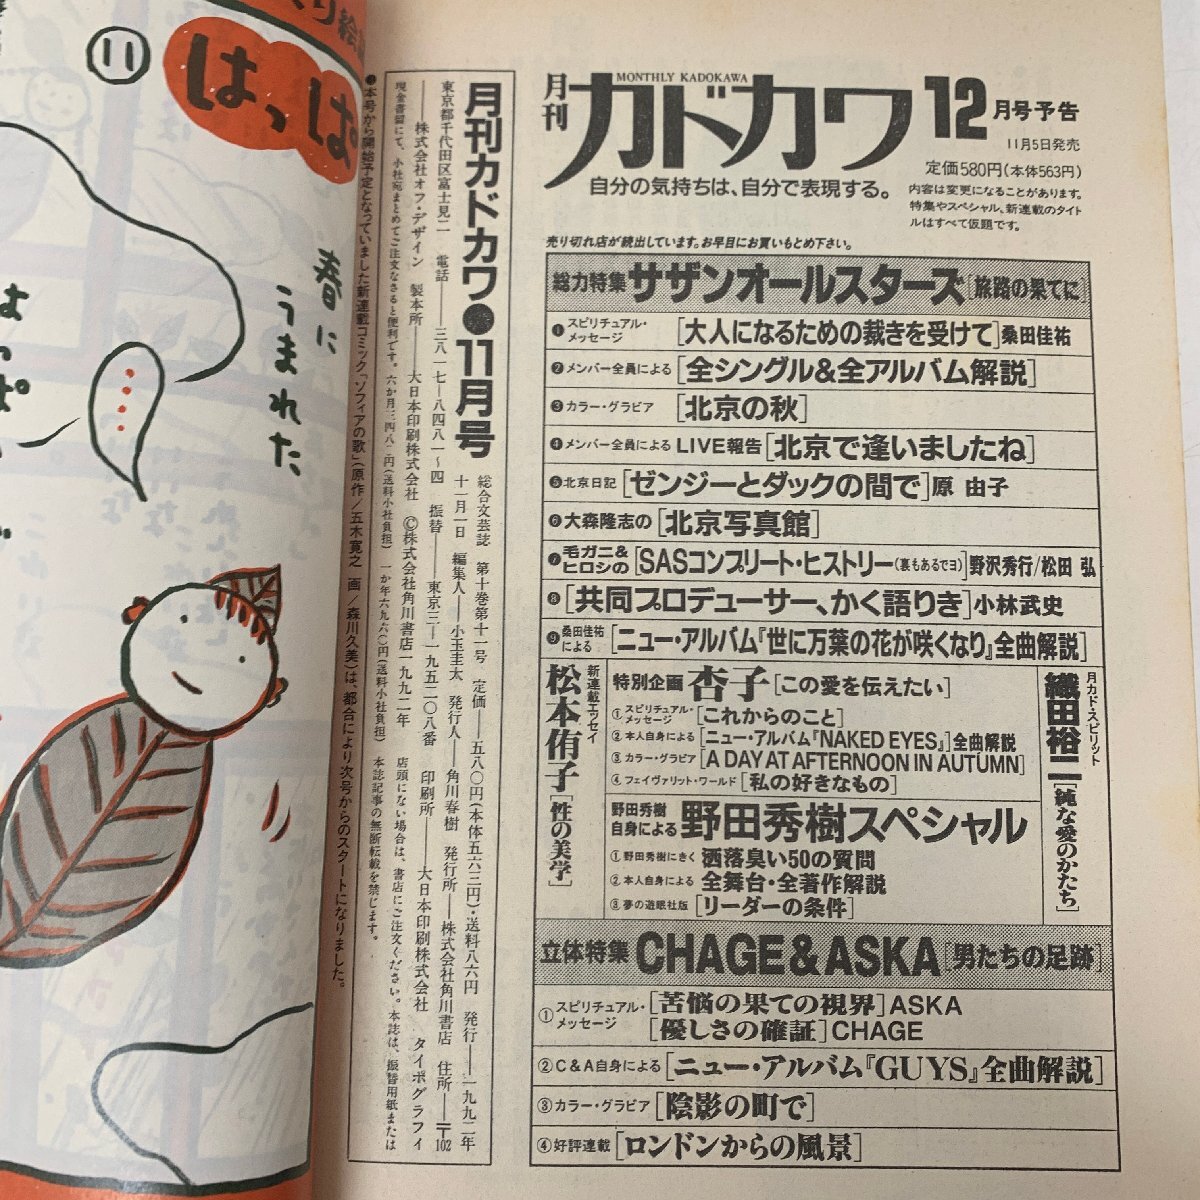 月刊
MONTHLY KADOKAWA
カドカワ
12月号予告
11月5日発売
定価580円(本体563円)
自分の気持ちは、自分で表現する。
内容は変更になることがあります。
特集やスペシャル、新連載のタイト
ルはすべて仮題です。
売り切れ店が続出しています。お早目にお買いもとめ下さい。
総力特集 サザンオールスターズ[旅路の果てに]
❶スピリチュアル・メッセージ[大人になるための裁きを受けて]桑田佳祐
❷メンバー全員による[全シングル&全アルバム解説]
❸カラー・グラビア[北京の秋]
❹メンバー全員によるLIVE報告[北京で逢いましたね]
❺北京日記[ゼンジーとダックの間で]原 由子
❻大森隆志の[北京写真館]
❼毛ガニ&ヒロシの[SASコンプリート・ヒストリー(裏もあるでヨ)]野沢秀行/松田 弘
❽[共同プロデューサー、かく語りき]小林武史
❾桑田佳祐による[ニュー・アルバム『世に万葉の花が咲くなり』全曲解説]
月カド・スピリット
織田裕二[純な愛のかたち]
特別企画 杏子[この愛を伝えたい]
①スピリチュアル・メッセージ[これからのこと]
②本人自身による[ニュー・アルバム『NAKED EYES』]全曲解説
③カラー・グラビア[A DAY AT AFTERNOON IN AUTUMN]
④フェイヴァリット・ワールド[私の好きなもの]
野田秀樹自身による 野田秀樹スペシャル
①野田秀樹にきく 洒落臭い50の質問
②本人自身による 全舞台・全著作解説
③夢の遊眠社版[リーダーの条件]
新連載エッセイ
松本侑子[性の美学]
立体特集 CHAGE&ASKA[男たちの足跡]
①スピリチュアル・メッセージ[苦悩の果ての視界]ASKA
[優しさの確証]CHAGE
②C&A自身による[ニュー・アルバム『GUYS』全曲解説]
③カラー・グラビア[陰影の町で]
④好評連載[ロンドンからの風景]
月刊カドカワ●11月号
総合文芸誌 第十巻第十一号 定価――五八〇円(本体五六三円)・送料八六円 発行――一九九二年
十一月一日 編集人――小玉圭太 発行人――角川春樹 発行所――株式会社角川書店 住所――〒102
東京都千代田区富士見二 電話――三八一七―八四八一~四 振替――東京三―一九五二〇八番 印刷所――大日本印刷株式会社 タイポグラフィ
――株式会社オフ・デザイン 製本所――大日本印刷株式会社 ©株式会社角川書店一九九二年
店頭にない場合は、書店にご注文ください。本誌は、振替用紙または
現金書留にて、小社宛まとめてご注文なさると便利です。六か月三四八〇円(送料小社負担) 一か年六九六〇円(送料小社負担) 本誌記事の無断転載を禁じます。
●本号から開始予定となっていました新連載コミック「ソフィアの歌」(原作/五木寛之 画/森川久美)は、都合により次号からのスタートになりました。
はっぱ
11
春に
うまれた